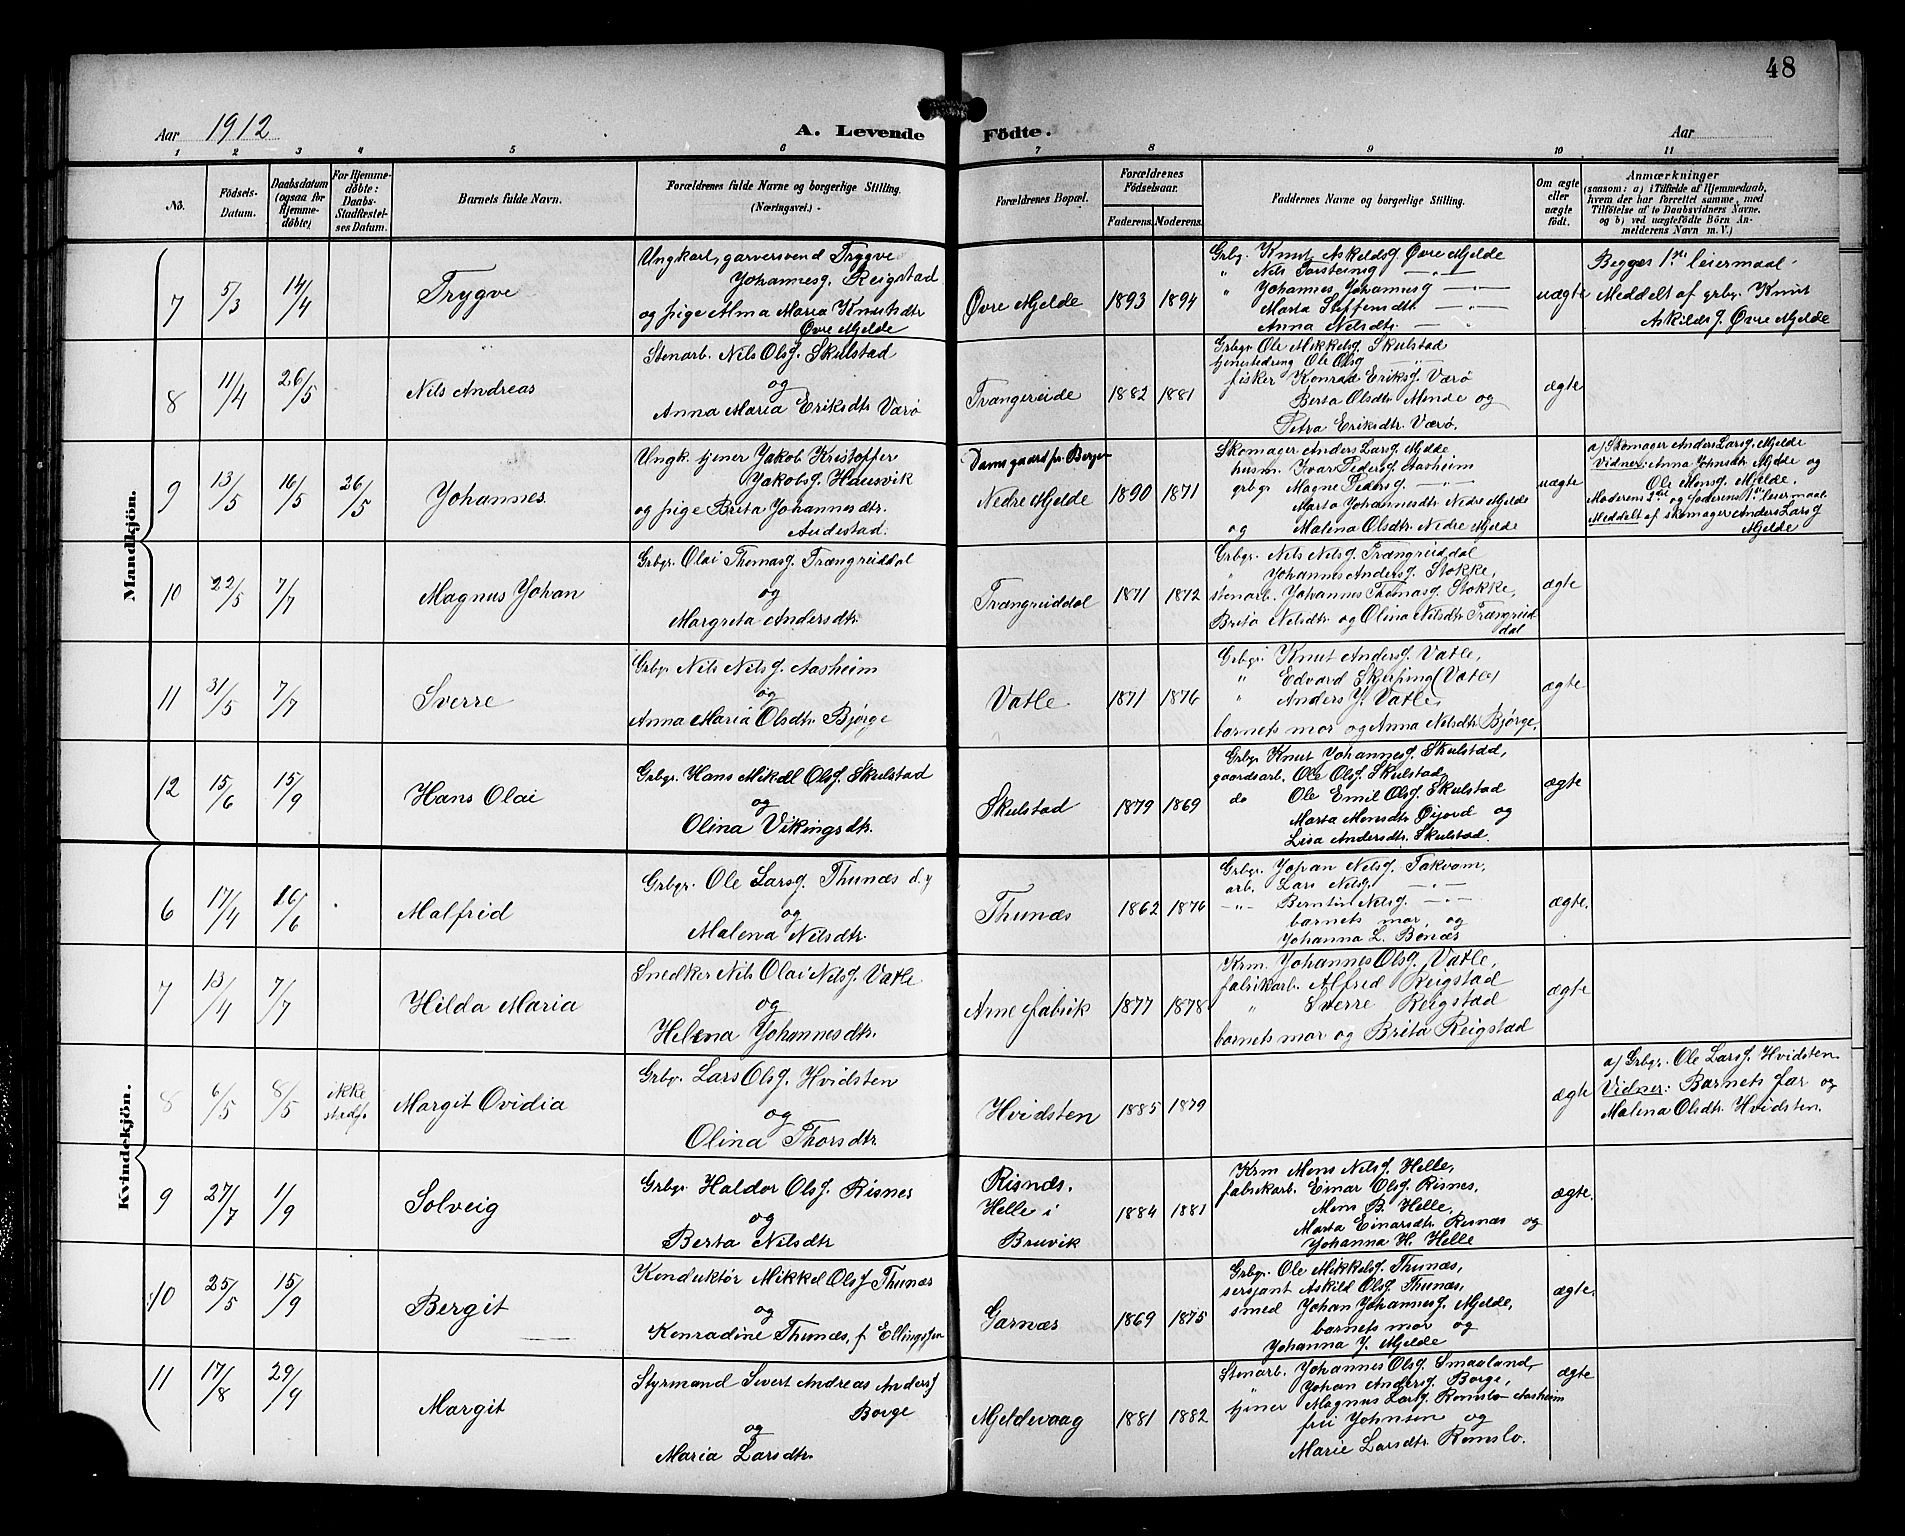 48
Aar 1912
A. Levende Födte.
Aar
1 2 3 4 5 6 7 8 9 10 11
No.
Födsels-Datum.
Daabsdatum (ogsaa for Hjemmedöbte)
For Hjemmedöbte: Daabs-Stadfæstelses Datum.
Barnets fulde Navn.
Forældrenes fulde Navne og borgerlige Stilling. (Næringsvei.)
Forældrenes Bopæl.
Forældrenes Födselsaar.
Faderens. Moderens.
Faddernes Navne og borgerlige Stilling.
Om ægte eller uægte födt.
Anmærkninger
(saasom: a) i Tilfælde af Hjemmedaab, hvem der har forrettet samme, med Tilföielse af to Daabsvidners Navne, og b) ved uægtefödte Börn Anmelderens Navn m. V.)
Mandkjön.
7 5/3 14/4 Trygve
Ungkarl, garversvend Trygve
Johannesg. Reigstad
og pige Alma Maria Knutsdtr
Øvre Mjelde
Øvre Mjelde 1893 1894
Grbgr. Knut Askildsg. Øvre Mjelde
" Nils Torsteinsg — " —
" Johannes Johannesg — " —
Marta Steffensdtr — " —
Anna Nilsdtr. — "
uægte
Begges 1ste leiermaal.
Meddelt af grbgr. Knut
Askildsg. Øvre Mjelde
8 11/4 26/5 Nils Andreas
Stenarb. Nils Olsg. Skulstad
og
Anna Maria Eriksdtr. Værø
Trængereide 1882 1881
Grbgr Ole Mikkelsg. Skulstad
tjenestedreng Ole Olsg — " —
fisker Konrad Eriksg. Værø
Berta Olsdtr. Mende og
Petra Eriksdtr. Værø.
ægte
9 13/5 16/5 26/5 Johannes
Ungk. tjener Jakob Kristoffer
Jakobsg. Hausvik
og pige Brita Johannesdtr.
Andestad.
Damsgaard pr. Bergen
Nedre Mjelde 1890 1871
Skomager Anders Larsg. Mjelde
husm. Ivar Pedersg. Aasheim
grbgr Magne Pedersg. — " —
Marta Johannesdtr Nedre Mjelde
og Malena Olsdtr. Nedre Mjelde
uægte
a) Skomager Anders Larsg. Mjelde
Vidner: Anna Johnsdtr. Mjelde og
Ole Monsg. Mjelde.
Moderens 2det og faderens 1ste leiermaal.
Meddelt af skomager Anders Larsg
Mjelde
10 22/5 7/7 Magnus Johan
Grbgr. Olai Thomasg. Trængreiddal
og
Margreta Andersdtr.
Trængreiddal 1871 1872
Grbgr. Nils Nilsg. Trængreiddal
" Johannes Andersg. Stokke,
stenarb. Johannes Thomasg. Stokke,
Brita Nilsdtr. og Olina Nilsdtr. Trængreid
dal
ægte
11 31/5 7/7 Sverre
Grbgr. Nils Nilsg. Aasheim
og
Anna Maria Olsdtr. Bjørge
Vatle 1871 1876
Grbgr. Knut Andersg. Vatle,
" Edvard Skulping (Vatle)
" Anders J. Vatle,
barnets mor og Anna Nilsdtr. Bjørge.
ægte
12 15/6 15/9 Hans Olai
Grbgr. Hans Mikael Olsg. Skulstad
og
Olina Vikingsdtr.
Skulstad 1879 1869
Grbgr Knut Johannesg. Skulstad
gaardsarb. Ole Olsg. Skulstad
do Ole Emil Olsg. Skulstad
Marta Monsdtr. Øijord og
Lisa Andersdtr. Skulstad.
ægte
Kvindekjön.
6 17/4 16/6 Malfrid
Grbgr. Ole Larsg. Thunæs d.y
og
Malena Nilsdtr.
Thunæs 1862 1876
Grbgr. Johan Nilsg. Takvam,
arb. Lars Nilsg. — " —
— " — Berntin Nilsg. — " —
barnets mor og
Johanna L. Bønæs
ægte.
7 13/4 7/7 Hilda Maria
Snedker Nils Olai Nilsg. Vatle
og
Helena Johannesdtr.
Arne Fabrik 1877 1878
Krm. Johannes Olsg. Vatle,
fabrikarb. Alfred Reigstad
" Sverre Reigstad
barnets mor og Brita Reigstad
ægte
8 6/5 8/5 ikke
stedf. Margit Ovidia
Grbgr. Lars Olsg. Hvidsten
og
Olina Thorsdtr.
Hvidsten 1885 1879
ægte
a) Grbgr. Ole Larsg. Hvidsten
Vidner: Barnets far og
Malena Olsdtr. Hvidsten.
9 27/7 1/9 Solveig
Grbgr Haldor Olsg. Risnes
og
Berta Nilsdtr
Risnæs.
Helle i
Bruvik 1884 1881
Krm Mons Nilsg. Helle,
fabrikarb. Einar Olsg. Risnes,
Mons B. Helle,
Marta Einarsdtr. Risnæs og
Johanna H. Helle
ægte.
10 25/5 15/9 Bergit
Konduktør Mikkel Olsg Thunæs
og
Konradine Thunæs, f. Ellingsen
Garnæs 1869 1875
Grbgr. Ole Mikkelsg. Thunæs,
sersjant Askild Olsg. Thunæs,
smed Johan Johannesg. Mjelde,
barnets mor og
Johanna J. Mjelde
ægte.
11 17/8 29/9 Margit
Styrmand Sivert Andreas Andersg
Borge
og
Maria Larsdtr.
Mjeldevaag 1881 1882
Stenarb. Johannes Olsg. Smaaland,
" Johan Andersg. Borge,
tjener Magnus Larsg. Romslo Aasheim
fru Johnsen og
Marie Larsdtr. Romslo.
ægte